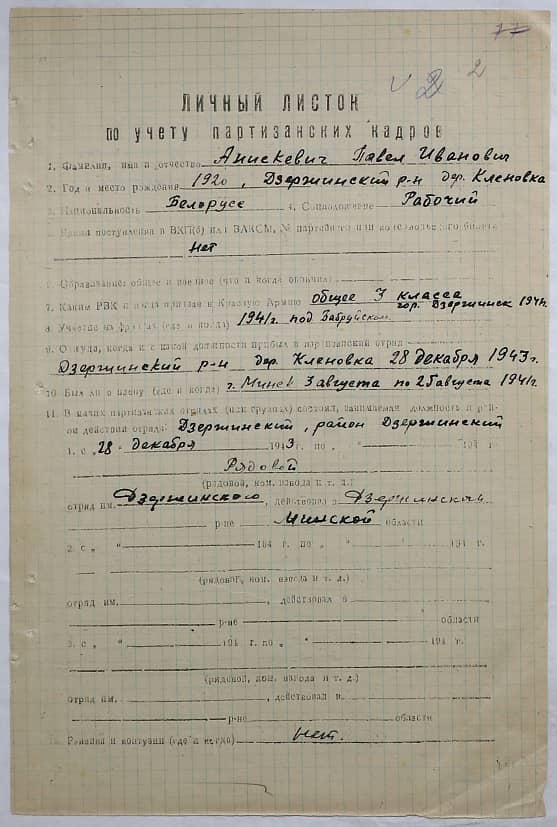 77
V 2 2
ЛИЧНЫЙ ЛИСТОК
по учету партизанских кадров
1. Фамилия, имя и отчество Анискевич Павел Иванович
2. Год и место рождения 1920, Дзержинский р-н дер. Кленовка
3. Национальность Белорусс 4. Соцположение Рабочий
Время поступления в ВКП(б) или ВЛКСМ, № партийного или комсомольского билета
Нет
6. Образование: общее и военное (что и когда окончил)
общее 3 класса
7. Каким РВК и когда призван в Красную Армию гор. Дзержинск 1941г.
8. Участие на фронтах (где и когда) 1941г. под Бабруйском
9. Откуда, когда и с какой должности прибыл в партизанский отряд
Дзержинский р-н дер. Кленовка 28 декабря 1943г.
10. Был ли в плену (где и когда) г. Минск 3 августа по 25 августа 1941г.
11. В каких партизанских отрядах (или группах) состоял, занимаемая должность и рай-
он действий отряда: Дзержинский, район Дзержинский
1. с „28" декабря 1943 г. по „ " 194 г.
Рядовой
(рядовой, ком. взвода и т. д.)
отряд им. Дзержинского, действовал в Дзержинский
р-не Минской области
2. с „ " 194 г. по „ " 194 г.
(рядовой, ком. взвода и т. д.)
отряд им. , действовал в
р-не области
3. с „ " 194 г. по „ " 194 г.
(рядовой, ком. взвода и т. д.)
отряд им. , действовал в
р-не области
Ранения и контузии (где и когда) Нет.